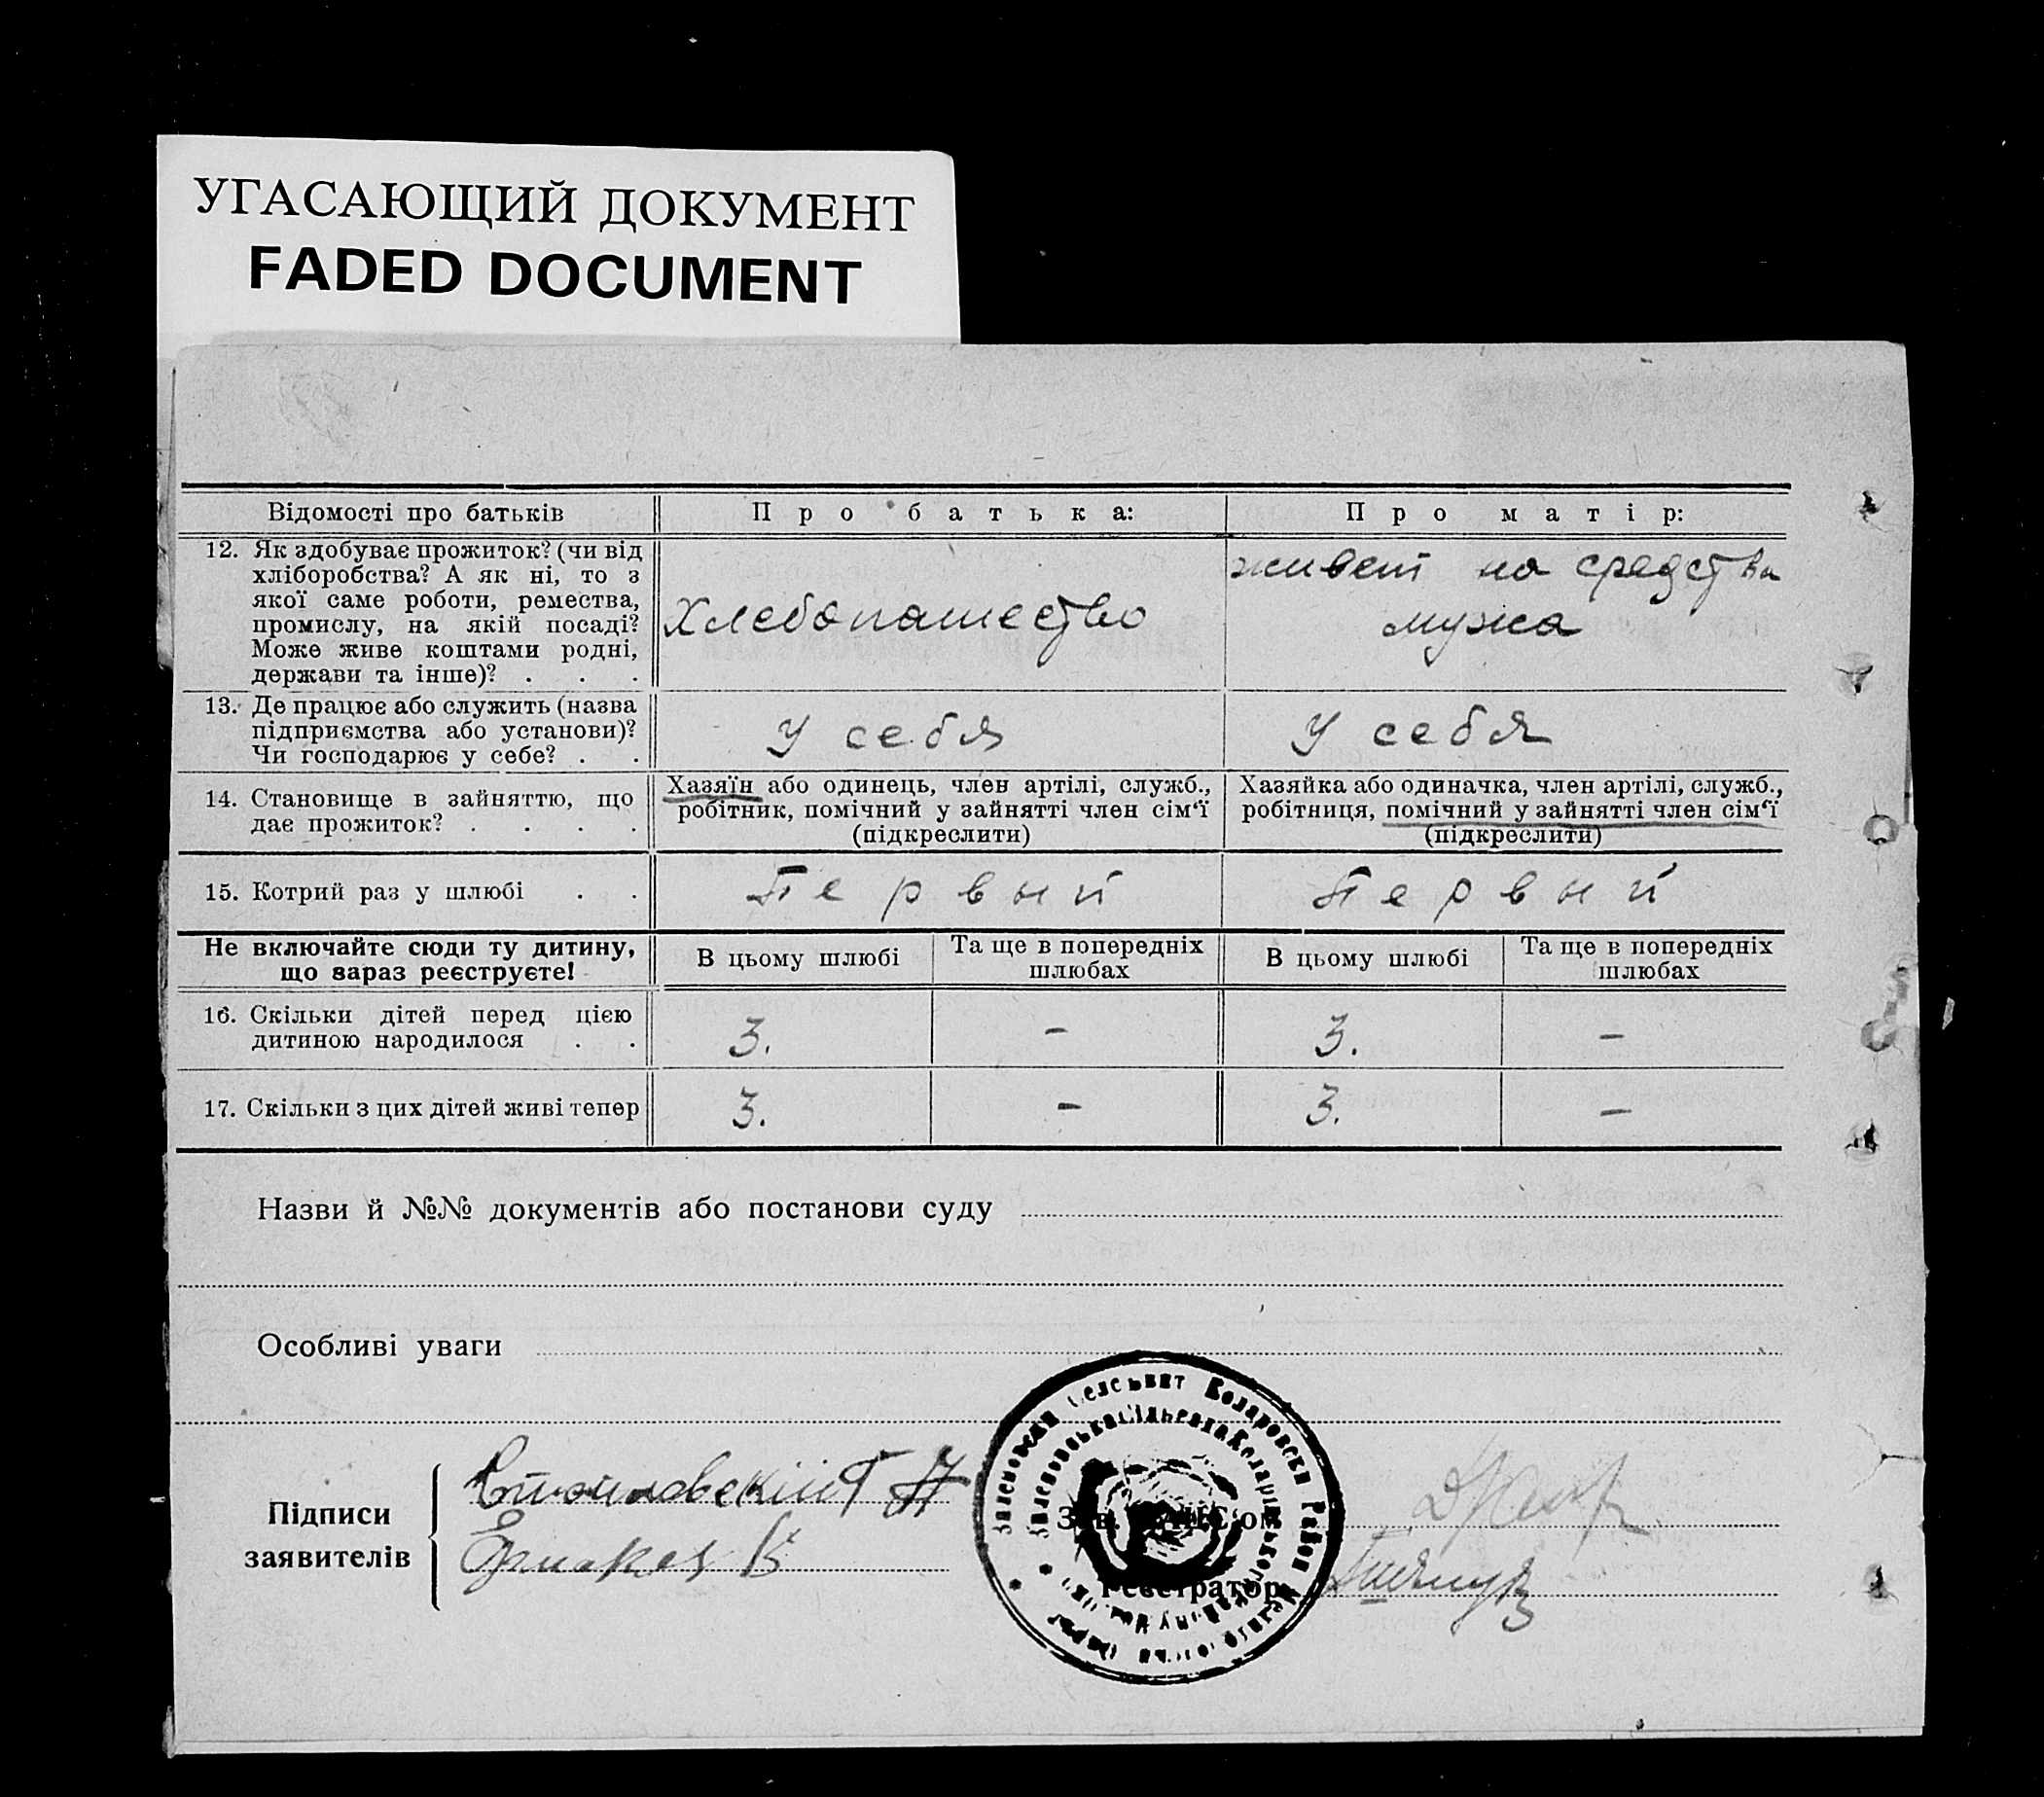 УГАСАЮЩИЙ ДОКУМЕНТ
FADED DOCUMENT
Відомості про батьків
Про батька:
Про матір:
12. Як здобуває прожиток? (чи від
хліборобства? А як ні, то з
якої саме роботи, ремества,
промислу, на якій посаді?
Може живе коштами родні,
держави та інше)? . . .
Хлебопашество
живет на средства
мужа
13. Де працює або служить (назва
підприємства або установи)?
Чи господарює у себе? . .
У себя
У себя
14. Становище в зайняттю, що
дає прожиток? . . . .
Хазяїн або одинець, член артілі, служб.,
робітник, помічний у зайнятті член сім‘ї
(підкреслити)
Хазяйка або одиначка, член артілі, служб.,
робітниця, помічний у зайнятті член сім‘ї
(підкреслити)
15. Котрий раз у шлюбі . .
Первый
Первый
Не включайте сюди ту дитину,
що зараз реєструєте!
В цьому шлюбі
Та ще в попередніх
шлюбах
В цьому шлюбі
Та ще в попередніх
шлюбах
16. Скільки дітей перед цією
дитиною народилося . .
3.
-
3.
-
17. Скільки з цих дітей живі тепер
3.
-
3.
-
Назви й №№ документів або постанови суду
Особливі уваги
Підписи
заявителів
Реєстратор